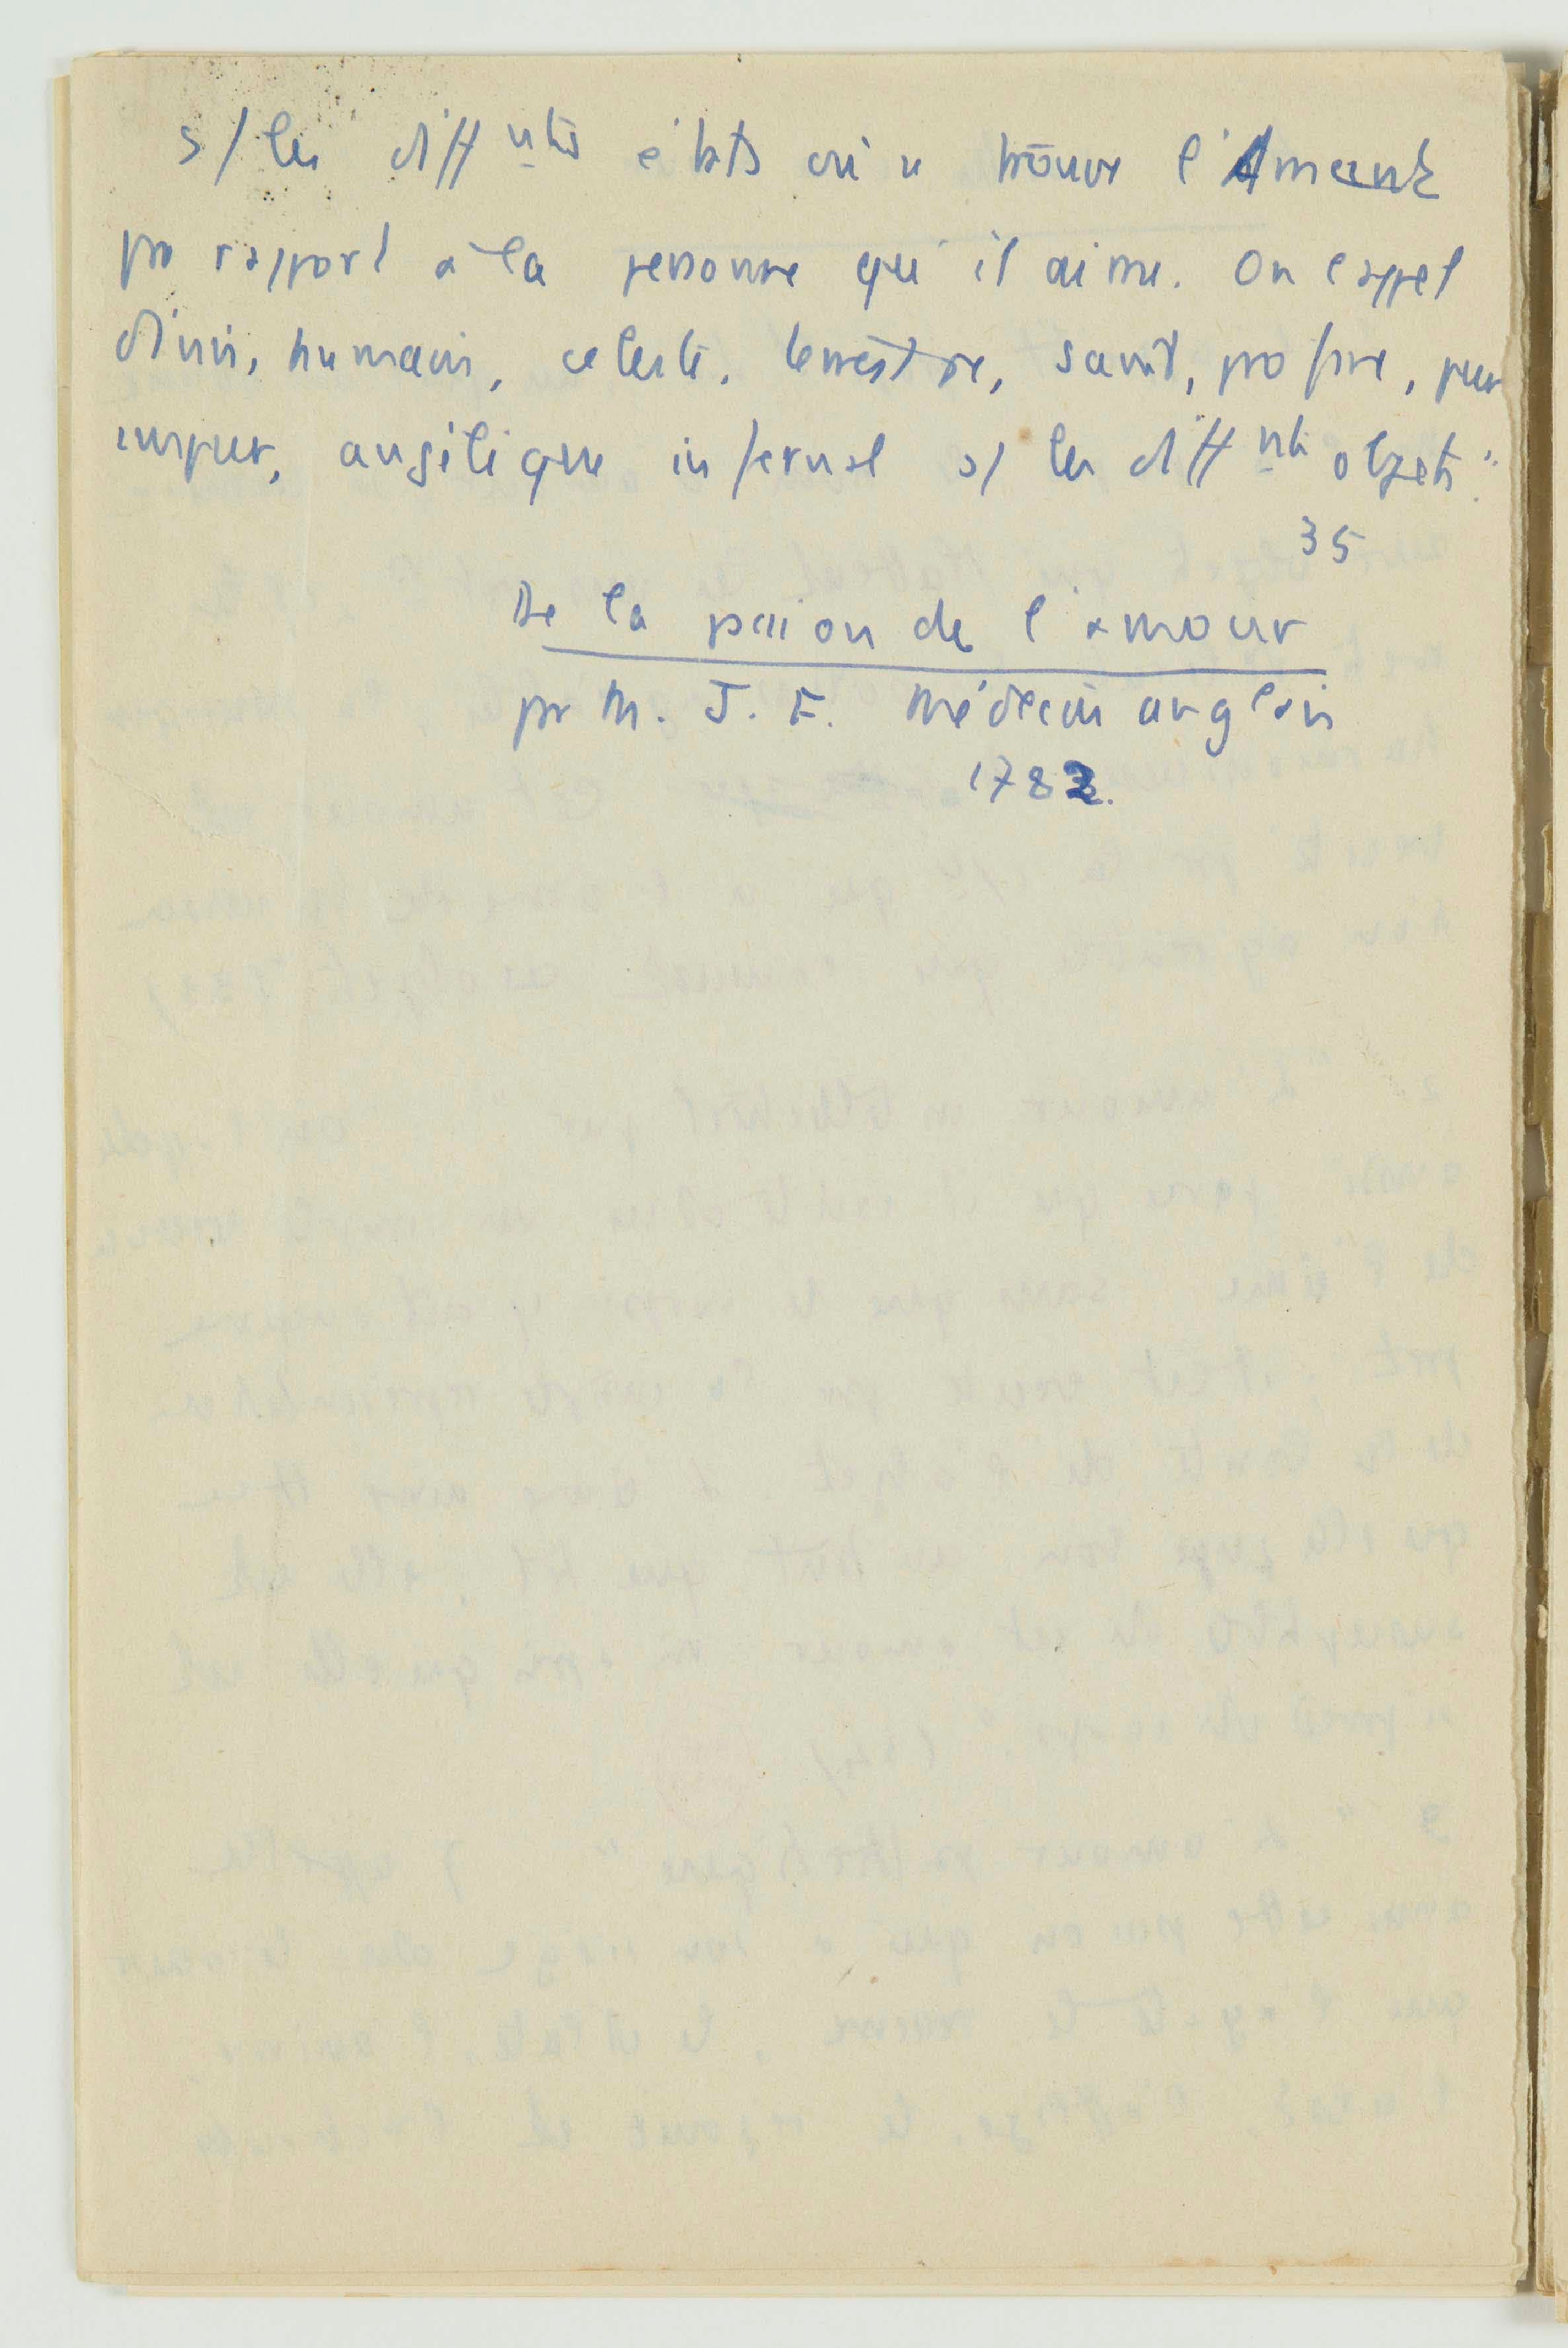 s/ les diffnts états où se trouve l'Amant
pr rapport à la personne qu'il aime. On l'appel
divin, humain, céleste, terrestre, saint, profane, pur
impur, angélique infernal s/ les diffnts objets"
35
De la passion de l'amour
pr M. J. F. Médecin anglais
1782.